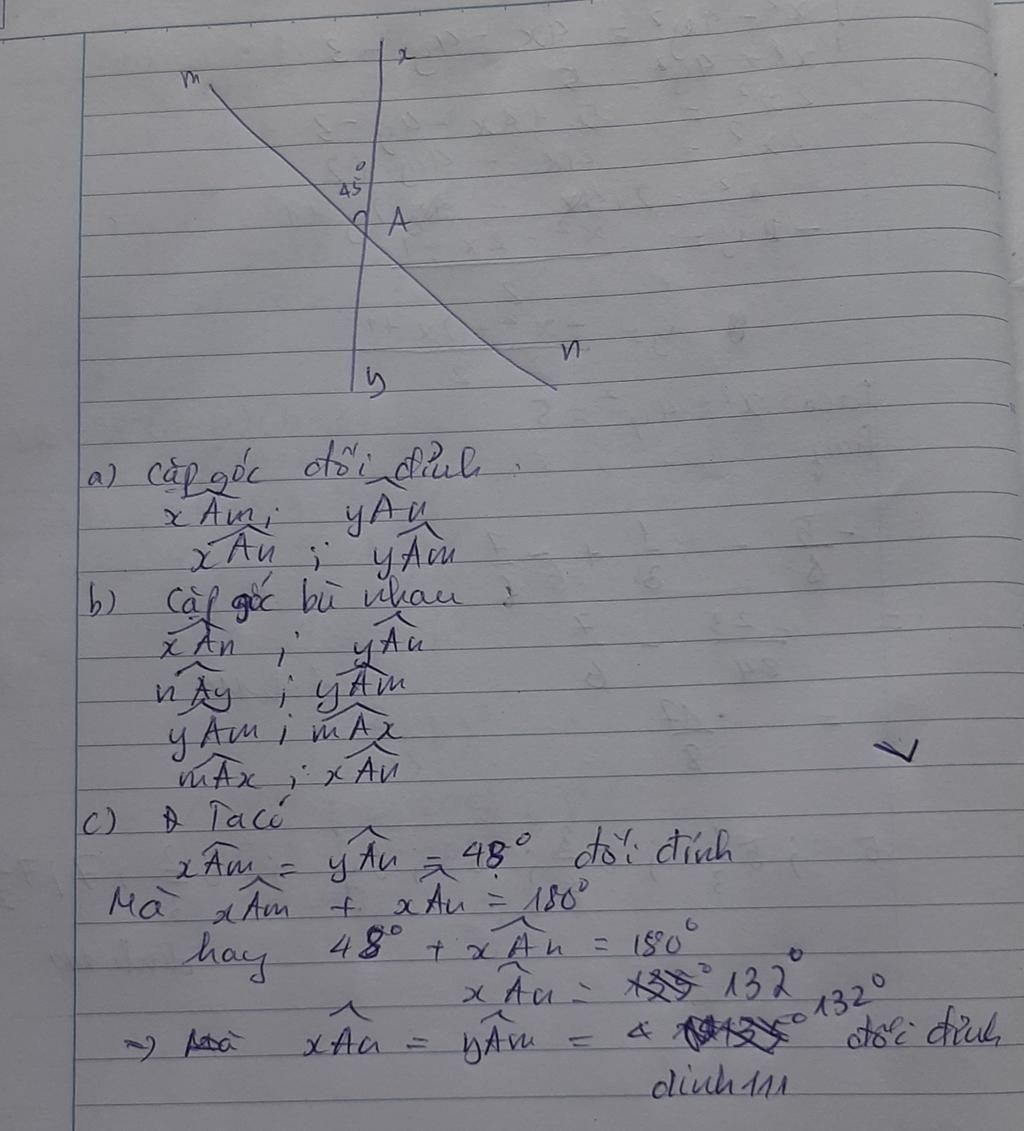 m
x
45°
A
n
y
a) Cặp góc đối đỉnh :
xÂm ; yÂn
xÂn ; yÂm
b) Cặp góc bù nhau :
xÂn ; yÂn
nÂy ; yÂm
yÂm ; mÂx
mÂx ; xÂn
c) Ta có
xÂm = yÂn = 48° đối đỉnh
Mà xÂm + xÂn = 180°
hay 48° + xÂn = 180°
xÂn = 132°
=> xÂn = yÂm = 132° đối đỉnh
dinh111